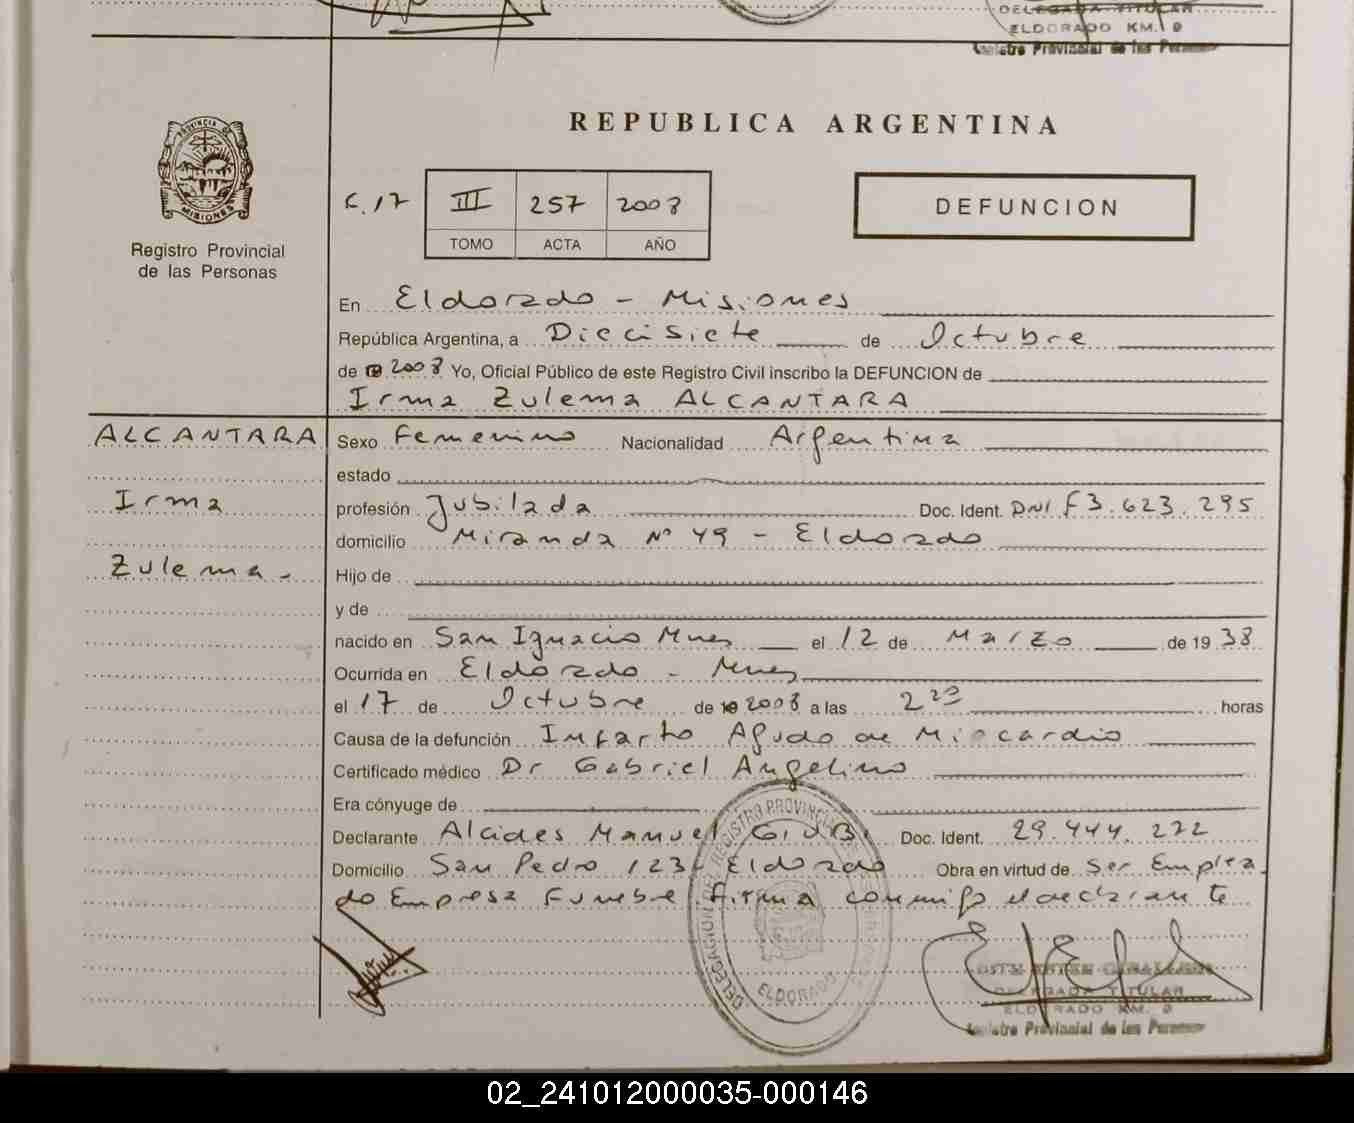 DELEGADA TITULAR
ELDORADO KM. 9
Registro Provincial de las Personas
REPUBLICA ARGENTINA
PROVINCIA DE
MISIONES
Registro Provincial
de las Personas
C.17 III 257 2008
TOMO ACTA AÑO
DEFUNCION
En Eldorado - Misiones
República Argentina, a Diecisiete de Octubre
de 2008 Yo, Oficial Público de este Registro Civil inscribo la DEFUNCION de
Irma Zulema ALCANTARA
ALCANTARA
Irma
Zulema.-
Sexo Femenino Nacionalidad Argentina
estado
profesión Jubilada Doc. Ident. DNI F3.623.295
domicilio Miranda Nº 49 - Eldorado
Hijo de
y de
nacido en San Ignacio Mnes el 12 de Marzo de 1938
Ocurrida en Eldorado - Mnes
el 17 de Octubre de 2008 a las 2 horas
Causa de la defunción Infarto Agudo de Miocardio
Certificado médico Dr Gabriel Angelino
Era cónyuge de
Declarante Alcides Manuel Doc. Ident. 29.444.272
Domicilio San Pedro 123 Eldorado Obra en virtud de Ser Emplea
do Empresa Funebre Firma conmigo el declarante
DELEGACION DEL REGISTRO PROVINCIAL DE LAS PERSONAS
ELDORADO
DELEGADA TITULAR
ELDORADO KM. 9
Registro Provincial de las Personas
02_241012000035-000146